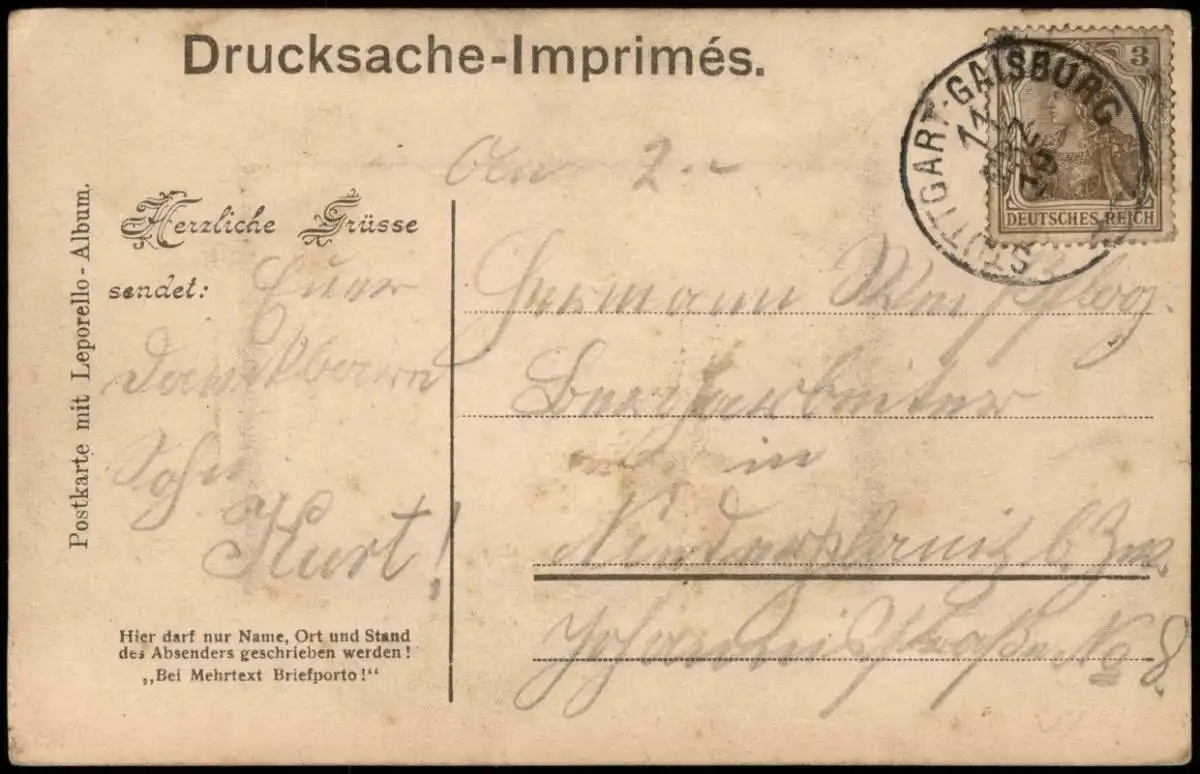 Drucksache-Imprimés.
STUTTGART-GAISBURG
11
3
DEUTSCHES REICH
An
Postkarte mit Leporello-Album.
Herzliche Grüsse
sendet: Euer
dankbarer
Sohn
Kurt!
Hier darf nur Name, Ort und Stand
des Absenders geschrieben werden!
„Bei Mehrtext Briefporto!“
Hermann
Bergarbeiter
in
Niederplanitz b Zw.
Johannisstraße No 8.